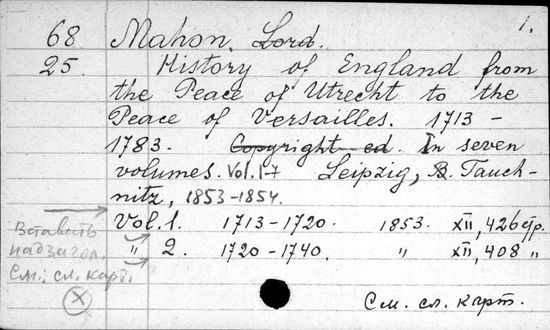 1.
68 Mahon, Lord.
25. History of England from
the Peace of Utrecht to the
Peace of Versailles. 1713 -
1783. Copyright ed. In seven
volumes. Vol. 1-7 Leipzig, B. Tauch-
nitz, 1853-1854.
Vol. 1. 1713-1720. 1853. XII, 426 стр.
" 2. 1720-1740. " XII, 408 "
Вставить
надзагол.
См. сл. карт.
X
См. сл. карт.